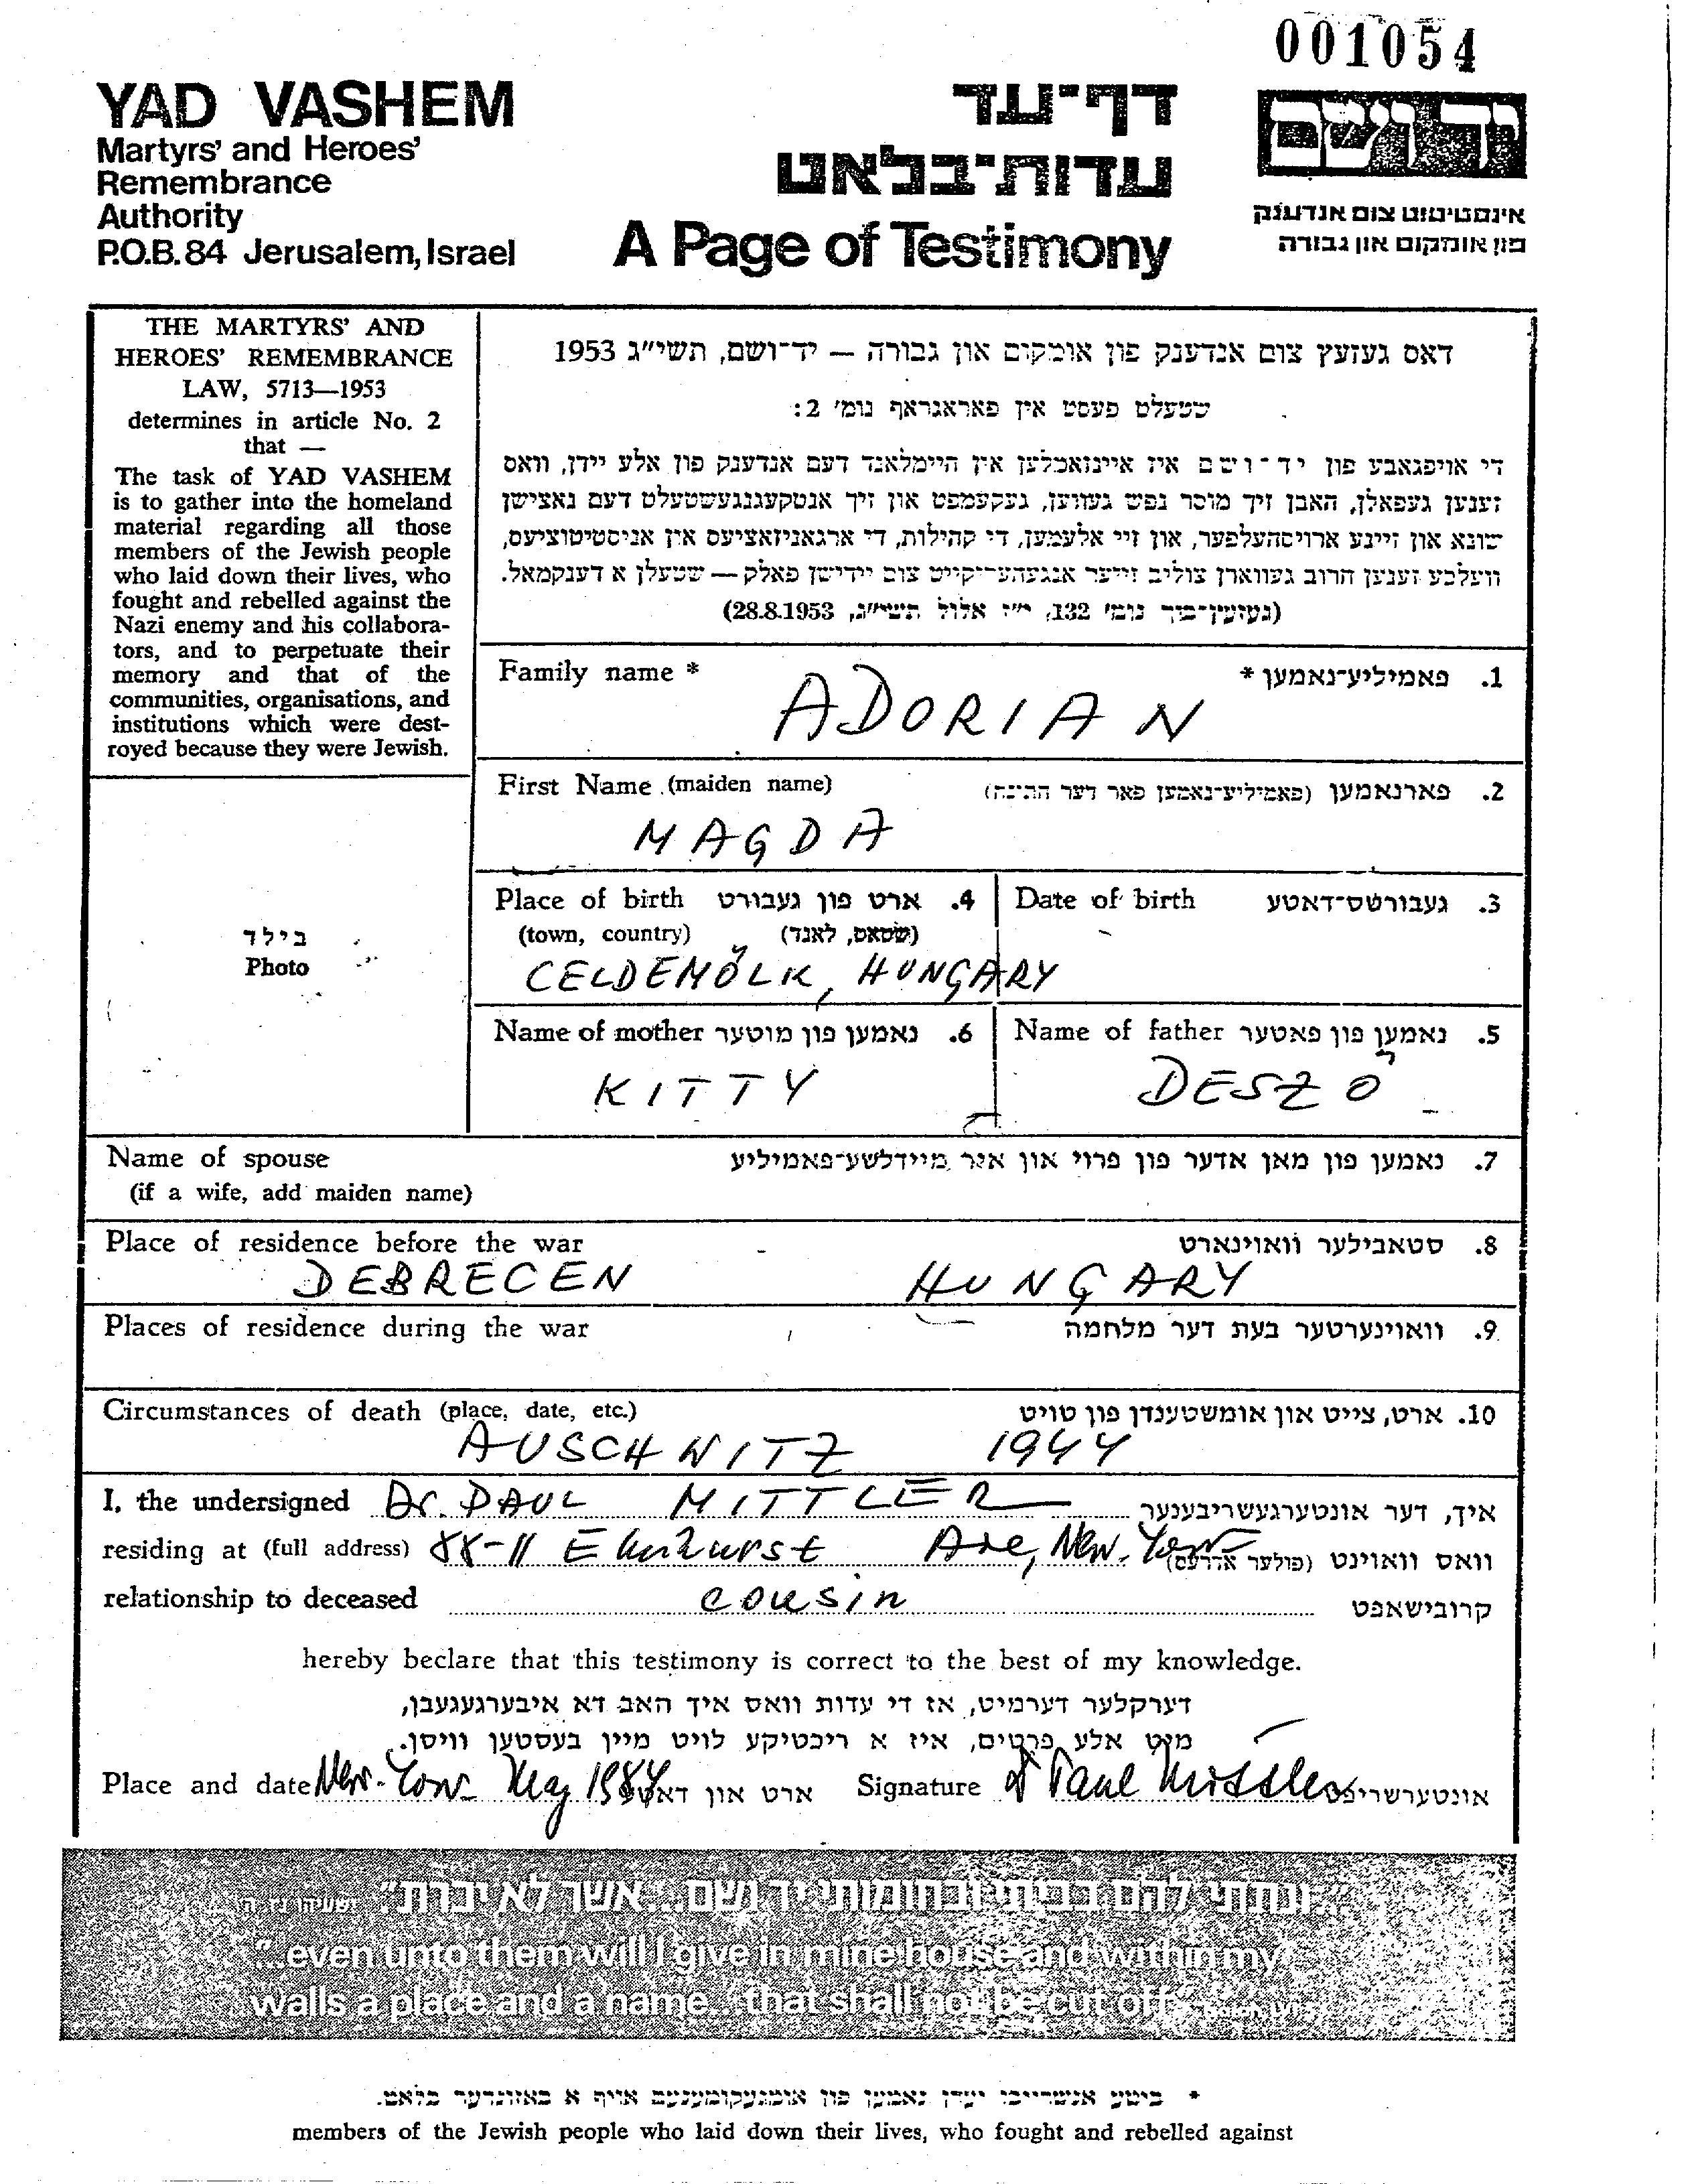 001054
YAD VASHEM
Martyrs' and Heroes'
Remembrance
Authority
P.O.B. 84 Jerusalem, Israel
דף־עד
עדות־בלאט
A Page of Testimony
יד ושם
אינסטיטוט צום אנדענק
פון אומקום און גבורה
THE MARTYRS' AND
HEROES' REMEMBRANCE
LAW, 5713—1953
determines in article No. 2
that —
The task of YAD VASHEM
is to gather into the homeland
material regarding all those
members of the Jewish people
who laid down their lives, who
fought and rebelled against the
Nazi enemy and his collabora-
tors, and to perpetuate their
memory and that of the
communities, organisations, and
institutions which were dest-
royed because they were Jewish.
דאס געזעץ צום אנדענק פון אומקום און גבורה — יד־ושם, תשי"ג 1953
שטעלט פעסט אין פאראגראף נומ' 2:
די אויפגאבע פון יד־ושם איז איינזאמלען אין היימלאנד דעם אנדענק פון אלע יידן, וואס
זענען געפאלן, האבן זיך מוסר נפש געווען, געקעמפט און זיך אנטקעגנגעשטעלט דעם נאצישן
שונא און זיינע ארויסהעלפער, און זיי אלעמען, די קהילות, די ארגאניזאציעס אין אניסטיטוציעס,
וועלכע זענען חרוב געווארן צוליב זייער אנגעהעריקייט צום יידישן פאלק — שטעלן א דענקמאל.
(געזעץ־בוך נומ' 132, י"ז אלול תשי"ג, 28.8.1953)
Family name * פאמיליע־נאמען * .1
ADORIAN
First Name (maiden name) פארנאמען (פאמיליע־נאמען פאר דער חתונה) .2
MAGDA
Place of birth ארט פון געבורט .4
(town, country) (שטאט, לאנד)
Date of birth געבורטס־דאטע .3
CELDEMÖLK, HUNGARY
Name of mother נאמען פון מוטער .6
Name of father נאמען פון פאטער .5
KITTY
DESZÖ
בילד
Photo
Name of spouse נאמען פון מאן אדער פון פרוי און איר מיידלשע־פאמיליע .7
(if a wife, add maiden name)
Place of residence before the war סטאבילער וואוינארט .8
DEBRECEN HUNGARY
Places of residence during the war וואוינערטער בעת דער מלחמה .9
Circumstances of death (place, date, etc.) ארט, צייט און אומשטענדן פון טויט .10
AUSCHWITZ 1944
I, the undersigned Dr. PAUL MITTLER איך, דער אונטערגעשריבענער
residing at (full address) 88-11 Elmhurst Ave, New-York וואס וואוינט (פולער אדרעס)
relationship to deceased cousin קרובישאפט
hereby beclare that this testimony is correct to the best of my knowledge.
דערקלער דערמיט, אז די עדות וואס איך האב דא איבערגעגעבן,
מיט אלע פרטים, איז א ריכטיקע לויט מיין בעסטען וויסן.
Place and date New-York May 1984 ארט און דאטע Signature Dr Paul Mittler אונטערשריפט
"...ונתתי להם בביתי ובחומותי יד ושם...אשר לא יכרת" ישעיהו נו, ה
"...even unto them will I give in mine house and within my
walls a place and a name...that shall not be cut off"
* ביטע אנשרייבן יעדן נאמען פון אומגעקומענעם אויף א באזונדער בלאט.
members of the Jewish people who laid down their lives, who fought and rebelled against